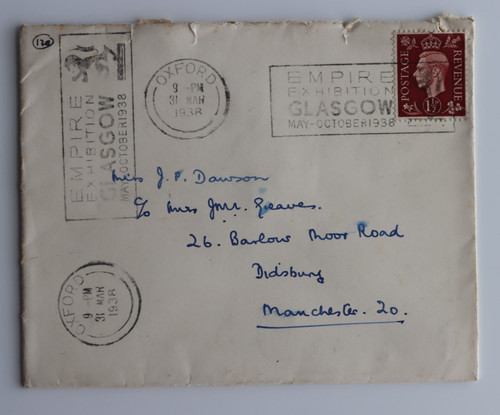 12a
EMPIRE
EXHIBITION
GLASGOW
MAY-OCTOBER 1938
OXFORD
9 - PM
31 MAR
1938
EMPIRE
EXHIBITION
GLASGOW
MAY-OCTOBER 1938
POSTAGE
REVENUE
1½
Miss J. P. Dawson
c/o Miss Greaves.
26. Barlow Moor Road
Didsbury
Manchester. 20.
OXFORD
9 - PM
31 MAR
1938